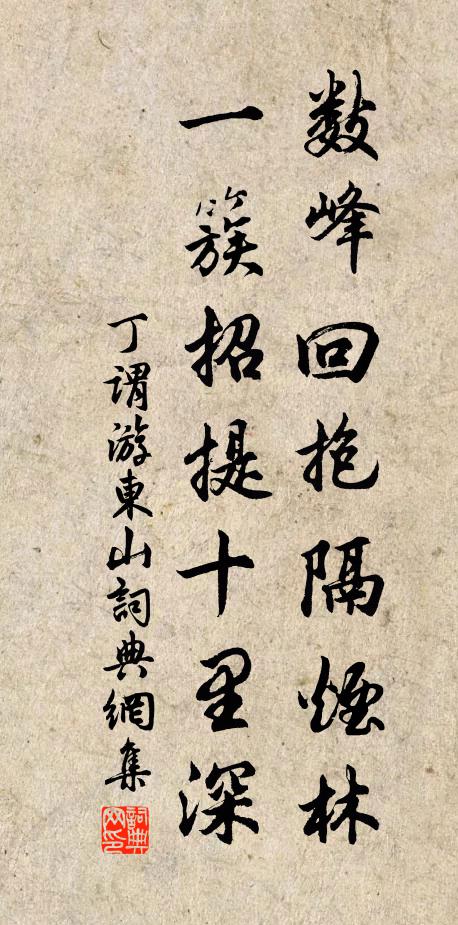 數峰回抱隔煙林
一簇招提十里深
丁謂游東山詞典網集
詞典网印